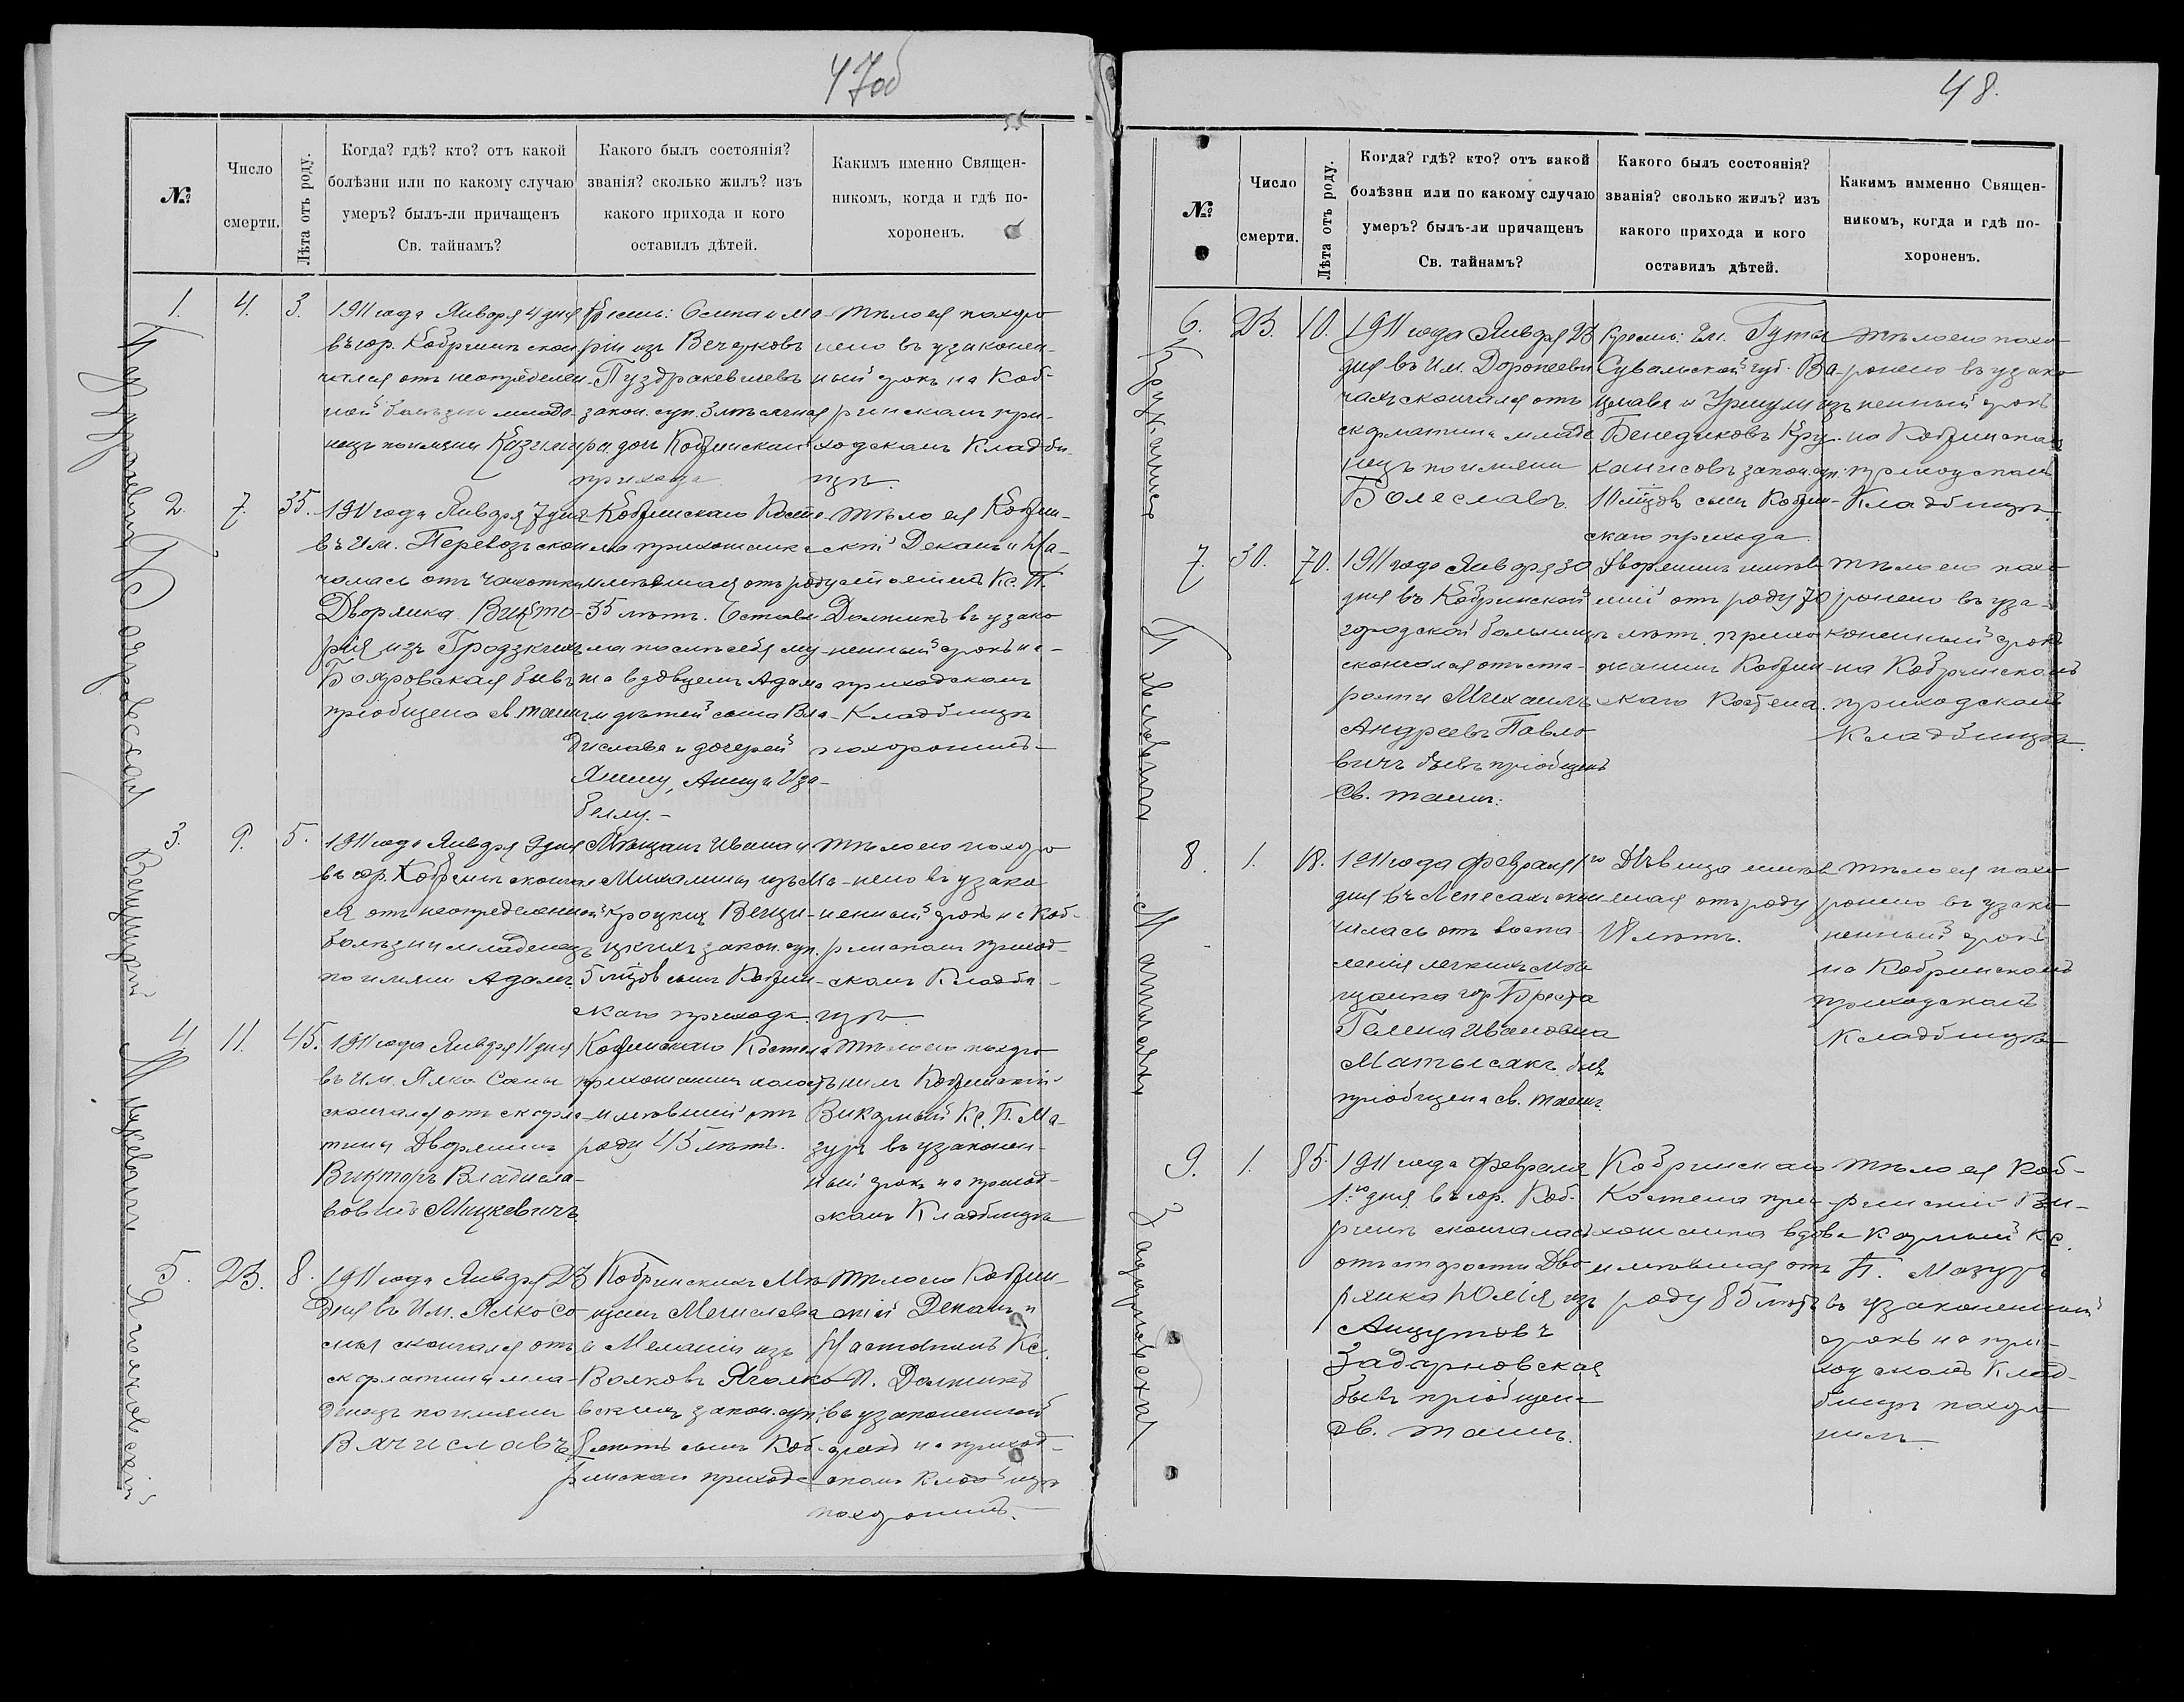 47об
№
Число смерти.
Лѣта отъ роду.
Когда? гдѣ? кто? отъ какой
болѣзни или по какому случаю
умеръ? былъ-ли причащенъ
Св. тайнамъ?
Какого былъ состоянія?
званія? сколько жилъ? изъ
какого прихода и кого
оставилъ дѣтей.
Какимъ именно Священ-
никомъ, когда и гдѣ по-
хороненъ.
1. 4. 3.
Пуздракевичъ
1911 года Января 4 дня
въ гор. Кобринѣ скон
чался отъ неопредѣлен-
ной болѣзни младе-
нецъ по имени Казимира
Крестьян: Осипа и Ма-
ріи изъ
Пуздракевичевъ
закон. суп. 3 мѣсячная
дочь Кобринскаго
прихода.
Тѣло ея похоро
нено въ узаконен-
ный срокъ на Коб-
ринскомъ при-
ходскомъ Кладби-
щѣ.
2. 7. 35.
Бояровская
1911 года Января 7 дня
въ Им. Перевозъ скон
чалась отъ чахотки
Дворянка Викто-
рія изъ Гродзкихъ
Бояровская бывъ
пріобщена св. таинъ
Кобринскаго Косте-
ла прихожанка
имѣвшая отъ роду
35 лѣтъ. Остави-
ла послѣ себя му-
жа вдовцемъ Адама
и дѣтей сына Вла-
дислава и дочерей
Янину, Анну и Иза-
беллу.-
Тѣло ея Кобрин-
скій Деканъ и На-
стоятель Кс. П.
Долникъ въ узако
ненный срокъ на
приходскомъ
Кладбищѣ
похоронилъ-
3. 9. 5.
Венцицкій
1911 года Января 9 дня
въ гор. Кобринѣ сконча
ся отъ неопредѣленной
болѣзни младенецъ
по имени Адамъ
Мѣщанъ Ивана и
Михалины изъ Ма-
кроцкихъ Венци-
цкихъ закон. суп.
5 мцовъ сынъ Кобрин-
скаго прихода.
Тѣло его похоро
нено въ узако
ненный срокъ на Коб-
ринскомъ приход-
скомъ Кладби-
щѣ.
4 11. 45.
Мицкевичъ
1911 года Января 11 дня
въ Им. Ялко Соны
скончался отъ скарла-
тины Дворянинъ
Викторъ Владисла-
вовичъ Мицкевичъ
Кобринскаго Костела
прихожанинъ холостъ
имѣвшій отъ
роду 45 лѣтъ.
Тѣло его похоро
нилъ Кобринскій
Викарный Кс. П. Ма-
зуръ въ узаконен-
ный срокъ на приход-
скомъ Кладбищѣ
5. 23. 8.
Яголковскій
1911 года Января 23
дня въ Им. Ялко Со-
скончался отъ
скарлатины мла-
денецъ по имени
Вячиславъ
Кобринскихъ Мѣ-
щанъ Мечислава
и Меланіи изъ
Волковъ Яголко-
вскихъ закон. суп:
8 лѣтъ сынъ Коб-
ринскаго прихода
Тѣло его Кобрин-
скій Деканъ и
Настоятель Кс.
П. Долникъ
въ узаконенный
срокъ на приход-
скомъ Кладбищѣ
похоронилъ.-
48.
№
Число смерти.
Лѣта отъ роду.
Когда? гдѣ? кто? отъ какой
болѣзни или по какому случаю
умеръ? былъ-ли причащенъ
Св. тайнамъ?
Какого былъ состоянія?
званія? сколько жилъ? изъ
какого прихода и кого
оставилъ дѣтей.
Какимъ имменно Священ-
никомъ, когда и гдѣ по-
хороненъ.
6. 23. 10.
Круканисъ
1911 года Января 23
дня въ Им. Дорофееви
чахъ скончался отъ
скарлатины младе
нецъ по имени
Болеславъ.
Крестьян: Гм. Гуты
Сувалской губ.
и Уршули изъ
Бенедиковъ Кру-
канисовъ закон. суп:
10 мцовъ сынъ Кобрин-
скаго прихода.
Тѣло его похо
ронено въ узако
ненный срокъ
на Кобринскомъ
приходскомъ
Кладбищѣ.
7. 30. 70.
Павловичъ
1911 года Января 30
дня въ Кобринской
городской больницѣ
скончался отъ ста-
рости Михаилъ
Андреевъ Павло
вичъ бывъ пріобщенъ
Св. таинъ:
Дворянинъ имѣв
шій отъ роду 70
лѣтъ. прихо
жанинъ Кобрин-
скаго Костела.
Тѣло его похо
ронено въ уза-
коненный срокъ
на Кобринскомъ
приходскомъ
Кладбищѣ.
8. 1. 18.
Матысякъ
1911 года Февраля 1го
дня въ Лепесахъ скон
чилась отъ воспа
ленія легкихъ мѣ
щанка гор. Бреста
Гелена Ивановна
Матысякъ бывъ
пріобщена св. таинъ.
Дѣвица имѣв
шая отъ роду
18 лѣтъ.
Тѣло ея похо
ронено въ узако
ненный срокъ
на Кобринскомъ
приходскомъ
Кладбищѣ
9. 1. 85.
Задарновская
1911 года Февраля
1.го дня въ гор. Коб-
ринѣ скончалась
отъ старости Дво
рянка Юлія изъ
Анцутовъ
Задарновская
бывъ пріобщена
св. таинъ.
Кобринскаго
Костела при-
хожанка вдова
имѣвшая отъ
роду 85 лѣтъ
Тѣло ея Коб-
ринскій Ви-
карный Кс.
П. Мазуръ
въ узаконенный
срокъ на при-
ходскомъ Клад-
бищѣ похоро
нилъ.